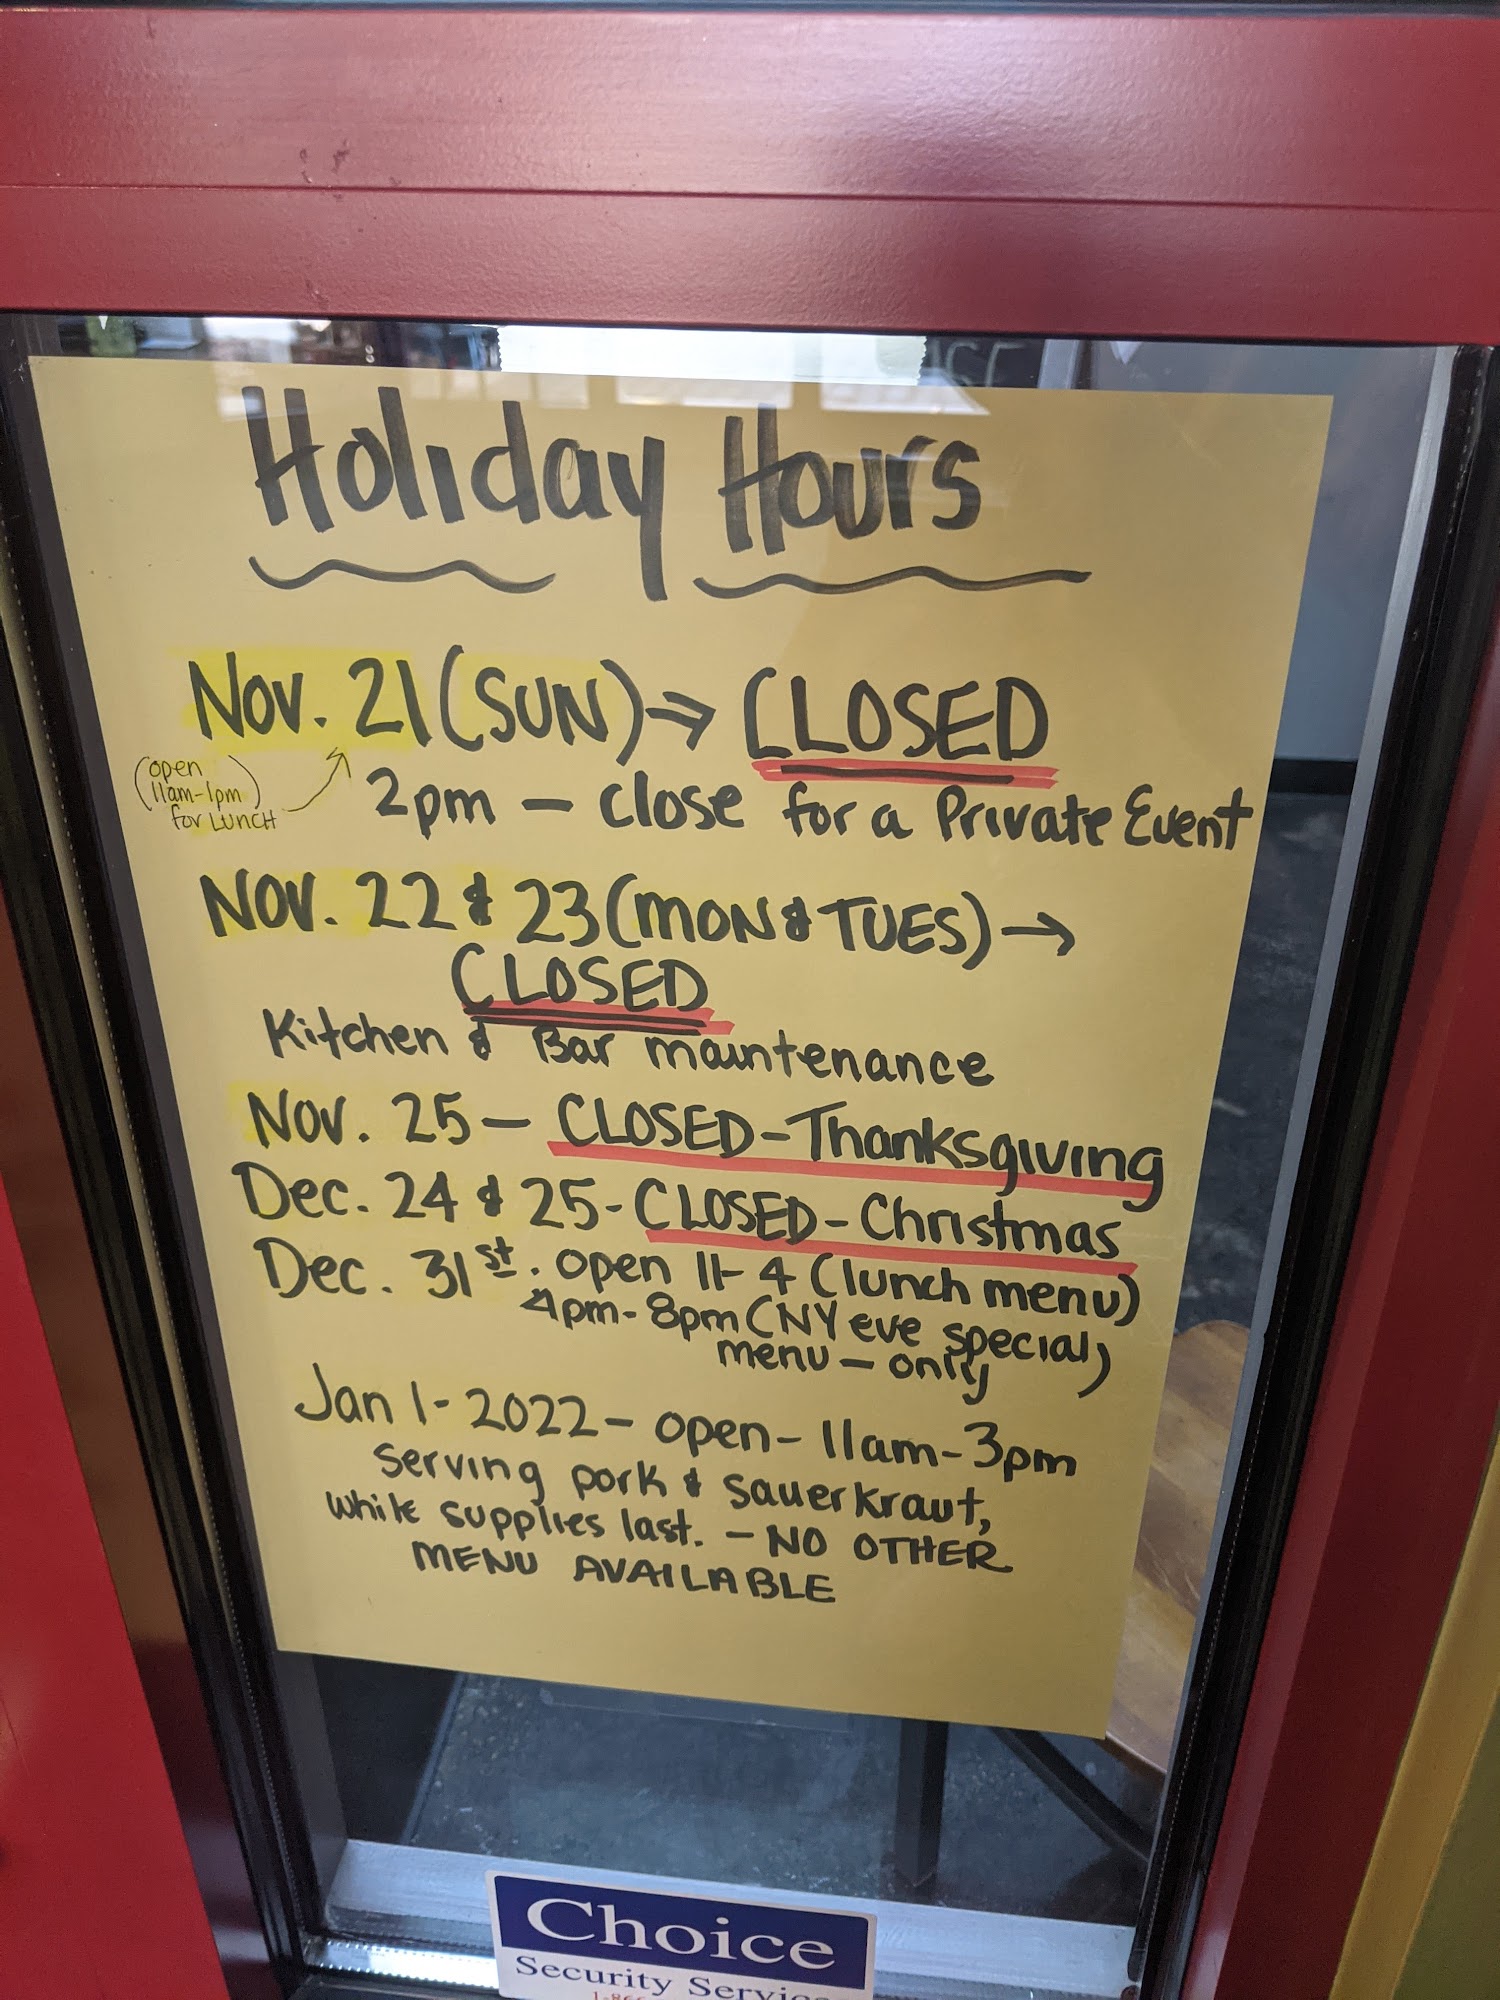 Holiday Hours
Nov. 21 (SUN) → CLOSED
(open
11am-1pm)
for LUNCH
2pm - close for a Private Event
Nov. 22 & 23 (MON & TUES) →
CLOSED
Kitchen & Bar maintenance
Nov. 25 - CLOSED - Thanksgiving
Dec. 24 & 25 - CLOSED - Christmas
Dec. 31st. open 11-4 (lunch menu)
4pm - 8pm (NY eve special)
menu - only
Jan 1 - 2022 - open - 11am - 3pm
serving pork & sauerkraut,
while supplies last. - NO OTHER
MENU AVAILABLE
Choice
Security Service